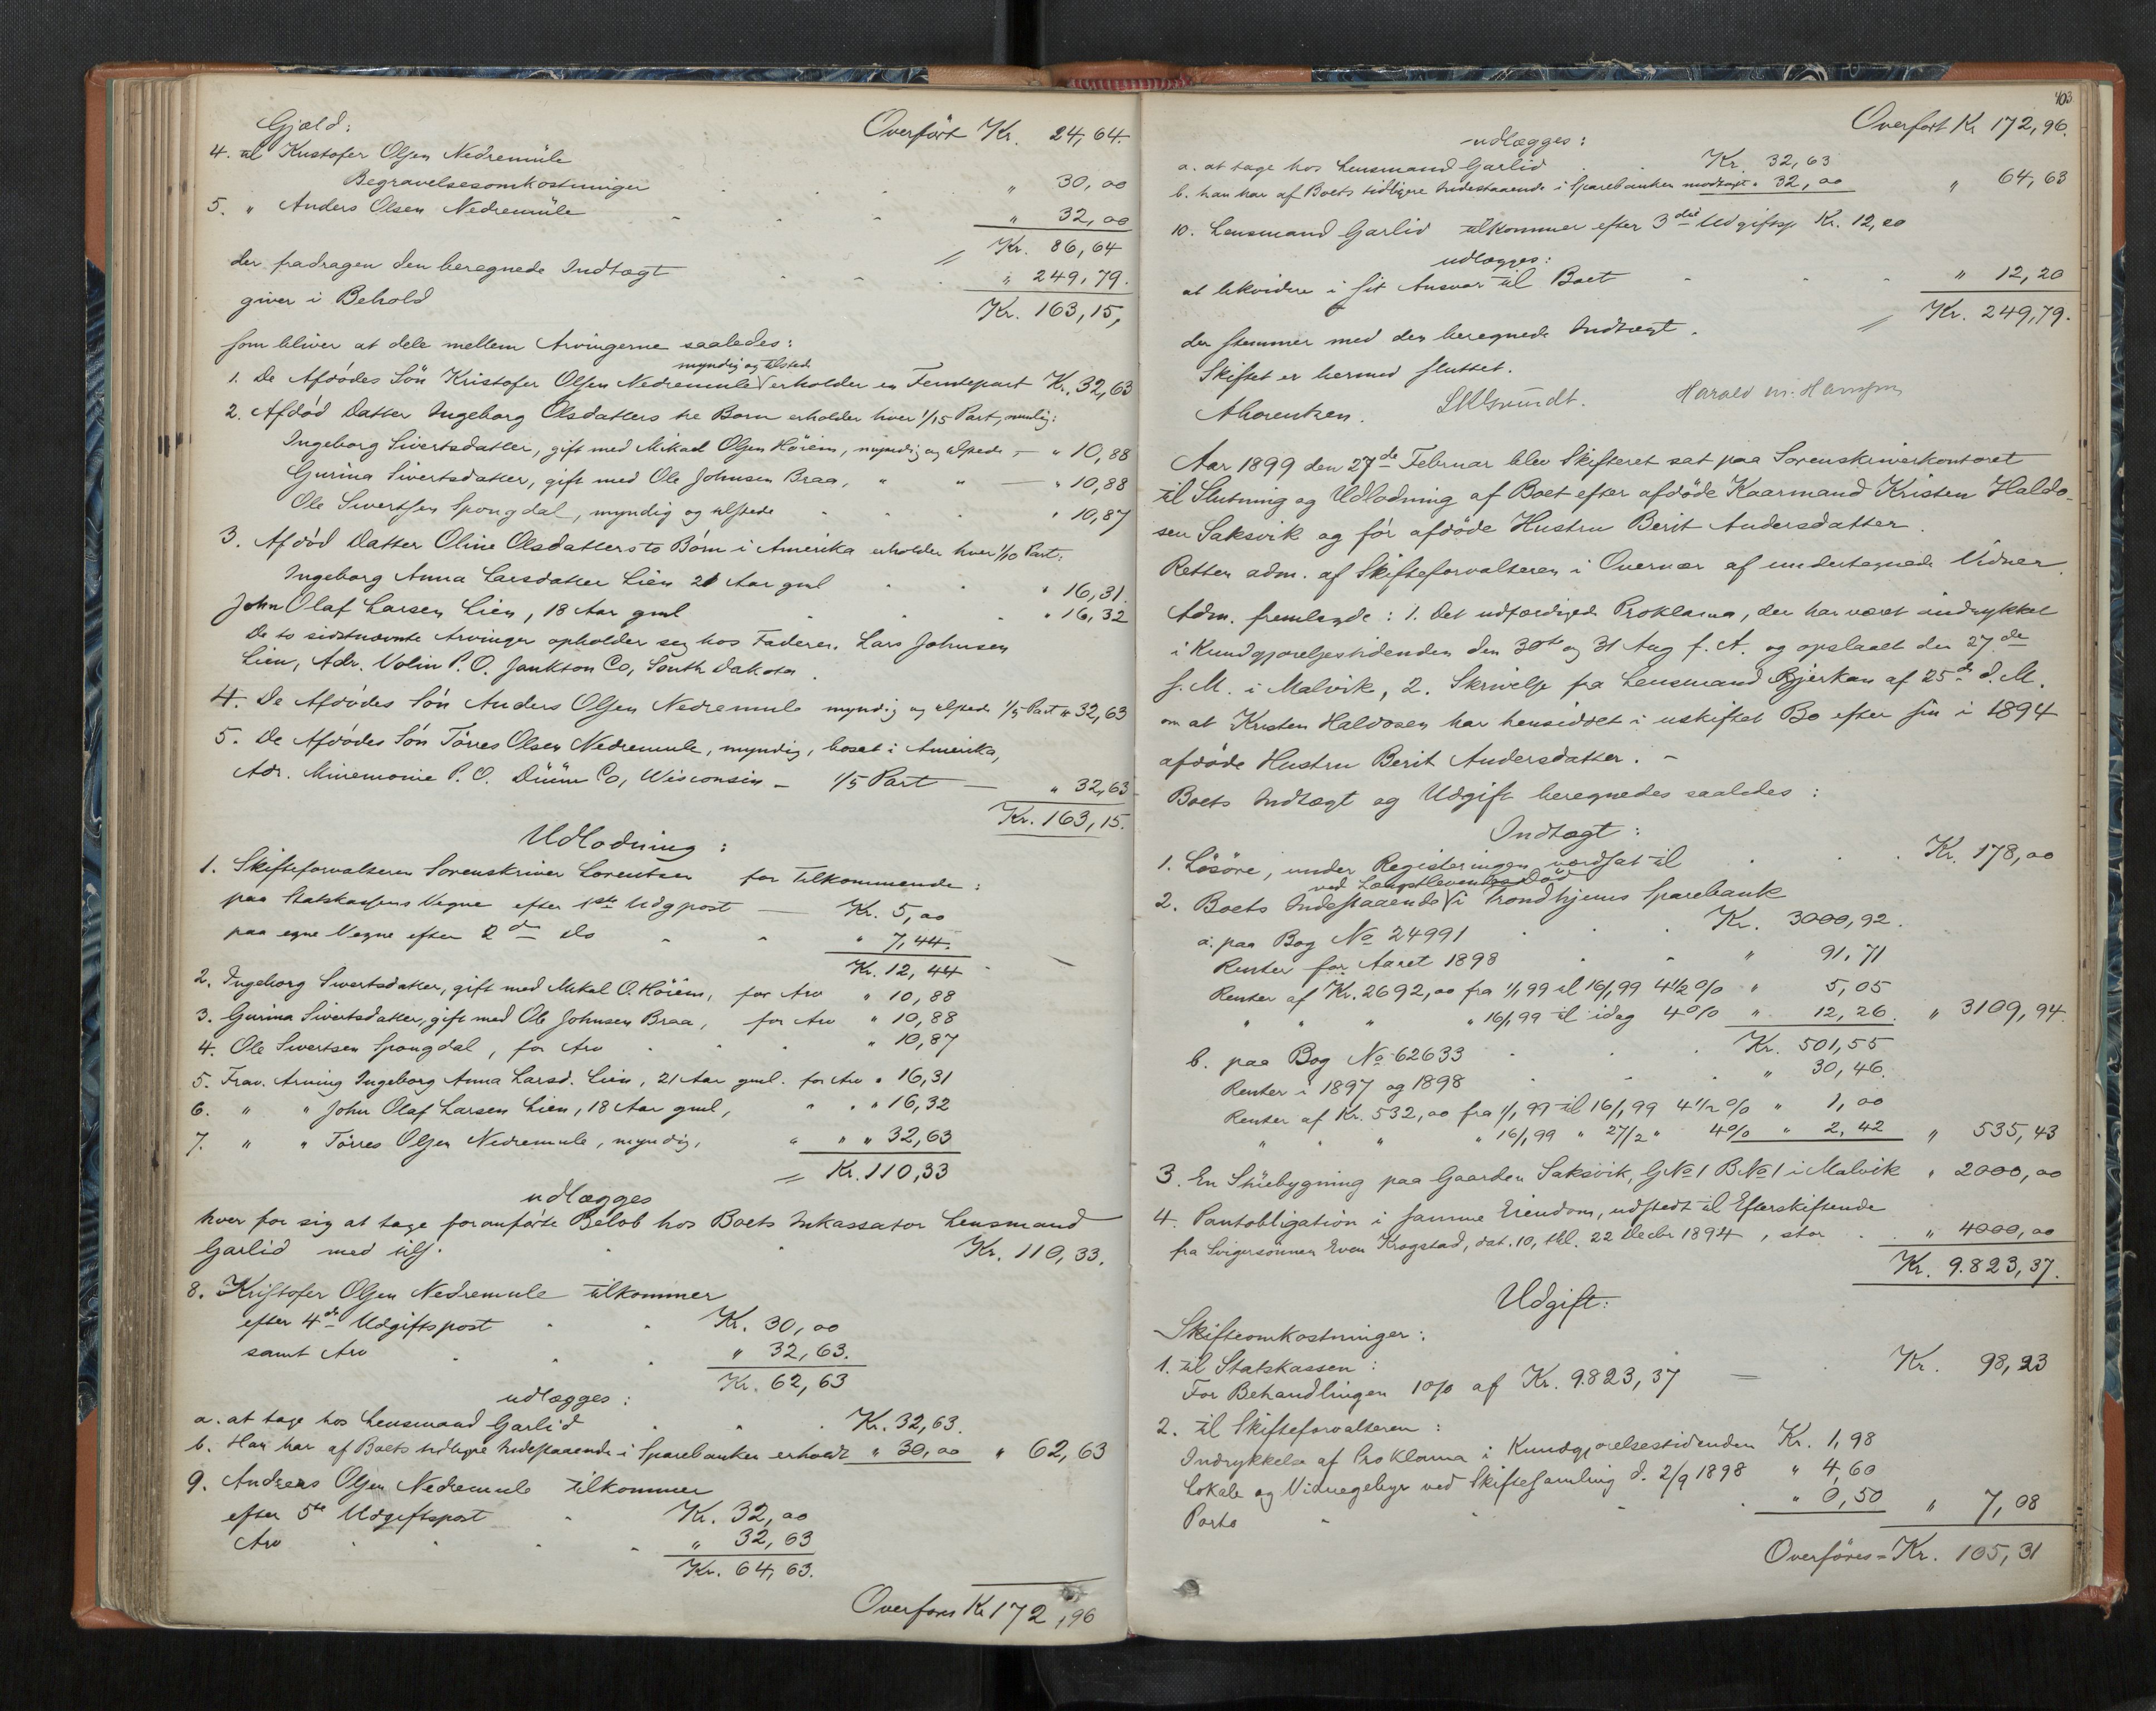 Gjæld: Overført Kr. 24,64.
4. til Kristofer Olsen Nedremule
Begravelsesomkostninger " 30,00
5. " Anders Olsen Nedremüle " 32,00
Kr. 86,64
der fradragen den beregnede Indtægt " 249,79.
giver i Behold Kr. 163,15,
som bliver at dele mellem Arvingerne saaledes:
myndig og tilstede
1. De Afdødes Søn Kristofer Olsen Nedremule erholder en Femtepart Kr. 32,63
2. Afdød Datter Ingeborg Olsdatters tre Børn erholder hver 1/15 Part, nemlig:
Ingeborg Sivertsdatter, gift med Mikael Olsen Höiem, myndig og tilstede — " 10,88
Gurina Sivertsdatter, gift med Ole Johnsen Braa, " " — " 10,88
Ole Sivertsen Spongdal, myndig og tilstede " 10,87
3. Afdød Datter Oline Olsdatters to Börn i Amerika erholder hver 1/10 Part:
Ingeborg Anna Larsdatter Lien 21 Aar gml " 16,31.
John Olaf Larsen Lien, 18 Aar gml " 16,32
De to sidstnævnte Arvinger opholder sig hos Faderen Lars Johnsen
Lien, Adr. Volin P.O. Jankton Co, South Dakota.
4. De Afdödes Sön Anders Olsen Nedremule myndig og tilstede 1/5 Part " 32,63
5. De Afdödes Sön Törres Olsen Nedremule, myndig, bosat i Amerika,
Adr. Minemonie P.O. Düün Co, Wisconsin – 1/5 Part — " 32,63
Kr. 163,15.
Udlodning:
1. Skifteforvalteren Sorenskriver Lorentsen for Tilkommende:
paa Statskassens Vegne efter 1ste Udgpost — Kr. 5,00
paa egne Vegne efter 2den do " 7,44.
Kr. 12,44
2. Ingeborg Sivertsdatter, gift med Mikal O. Höiem, for Arv " 10,88
3. Gurina Sivertsdatter, gift med Ole Johnsen Braa, for Arv " 10,88
4. Ole Sivertsen Spongdal, for Arv " 10,87
5. Frav. Arving Ingeborg Anna Larsd. Lien, 21 Aar gml. for Arv " 16,31
6. " " John Olaf Larsen Lien, 18 Aar gml, " " " 16,32
7. " " Törres Olsen Nedremule, myndig, " " " 32,63
Kr. 110,33
udlægges
hver for sig at tage foranførte Beløb hos Boets Inkassator Lensmand
Garlid med tils. Kr. 110,33.
8. Kristofer Olsen Nedremule tilkommer
efter 4de Udgiftspost Kr. 30,00
samt Arv " 32,63.
Kr. 62,63
udlægges:
a. at tage hos Lensmand Garlid Kr. 32,63.
b. Han har af Boets tidligere Indestaaende i Sparebanken erholdt " 30,00 " 62,63
9. Andreas Olsen Nedremule tilkommer
efter 5te Udgiftspost Kr. 32,00
Arv " 32,63
Kr. 64,63.
Overføres Kr 172,96
403
Overført Kr 172,96.
udlægges:
a. at tage hos Lensmand Garlid Kr. 32,63
b. han har af Boets tidligere Indestaaende i Sparebanken modtaget " 32,00 " 64,63
10. Lensmand Garlid tilkommer efter 3die Udgiftsp. Kr. 12,20
udlægges:
at likvidere i sit Ansvar til Boet " 12,20
Kr. 249,79.
der stemmer med den beregnede Indtægt.
Skiftet er hermed sluttet.
ALorentzen. Harald M. Hansen
Aar 1899 den 27de Februar blev Skifteret sat paa Sorenskriverkontoret
til Slutning og Udlodning af Boet efter afdøde Kaarmand Kristen Haldo-
sen Saksvik og før afdøde Hustru Berit Andersdatter.
Retten adm. af Skifteforvalteren i Overvær af undertegnede Vidner.
Adm. fremlagde: 1. Det udfærdigede Proklama, der har været indrykket
i Kundgjørelsestidenden den 30te og 31 Aug f. A. og opslaaet den 27de
s.M. i Malvik, 2. Skrivelse fra Lensmand Bjerkan af 25de d.M.
om at Kristen Haldosen har hensiddet i uskiftet Bo efter sin i 1894
afdøde Hustru Berit Andersdatter. –
Boets Indtægt og Udgift beregnedes saaledes:
Indtægt:
1. Lösöre, under Registeringen værdsat til Kr. 178,00
ved Længstlevendes Død
2. Boets Indestaaende i Trondhjems Sparebank
a. paa Bog No 24991 Kr. 3000,92.
Renter for Aaret 1898 " 91,71
Renter af Kr. 2692,00 fra 1/1 99 til 16/1 99 4 1/2 % " 5,05
" " " " 16/1 99 til idag 4% " 12,26. " 3109,94
b. paa Bog No 62633 Kr. 501,55
Renter i 1897 og 1898 " 30,46.
Renter af Kr. 532,00 fra 1/1 99 til 16/1 99 4 1/2 % " 1,00
" " " " 16/1 99 " 27/2 " 4% " 2,42 " 535,43
3. En Stüebygning paa Gaarden Saksvik, GNo 1 BNo 1 i Malvik " 2000,00
4. Pantobligation i samme Eiendom, udstedt til Efterskiftende
fra Svigersønnen Even Krogstad, dat. 10, thl. 22 Decbr 1894, stor " 4000,00
Kr. 9.823,37.
Udgift:
Skifteomkostninger:
1. til Statskassen:
For Behandlingen 1% af Kr. 9.823,37 = Kr. 98,23
2. til Skifteforvalteren:
Indrykkelse af Proklama i Kundgjørelsestidenden Kr. 1,98
Lokale og Vidnegebyr ved Skiftesamling d. 2/9 1898 " 4,60
Porto " 0,50 " 7,08
Overføres = Kr. 105,31